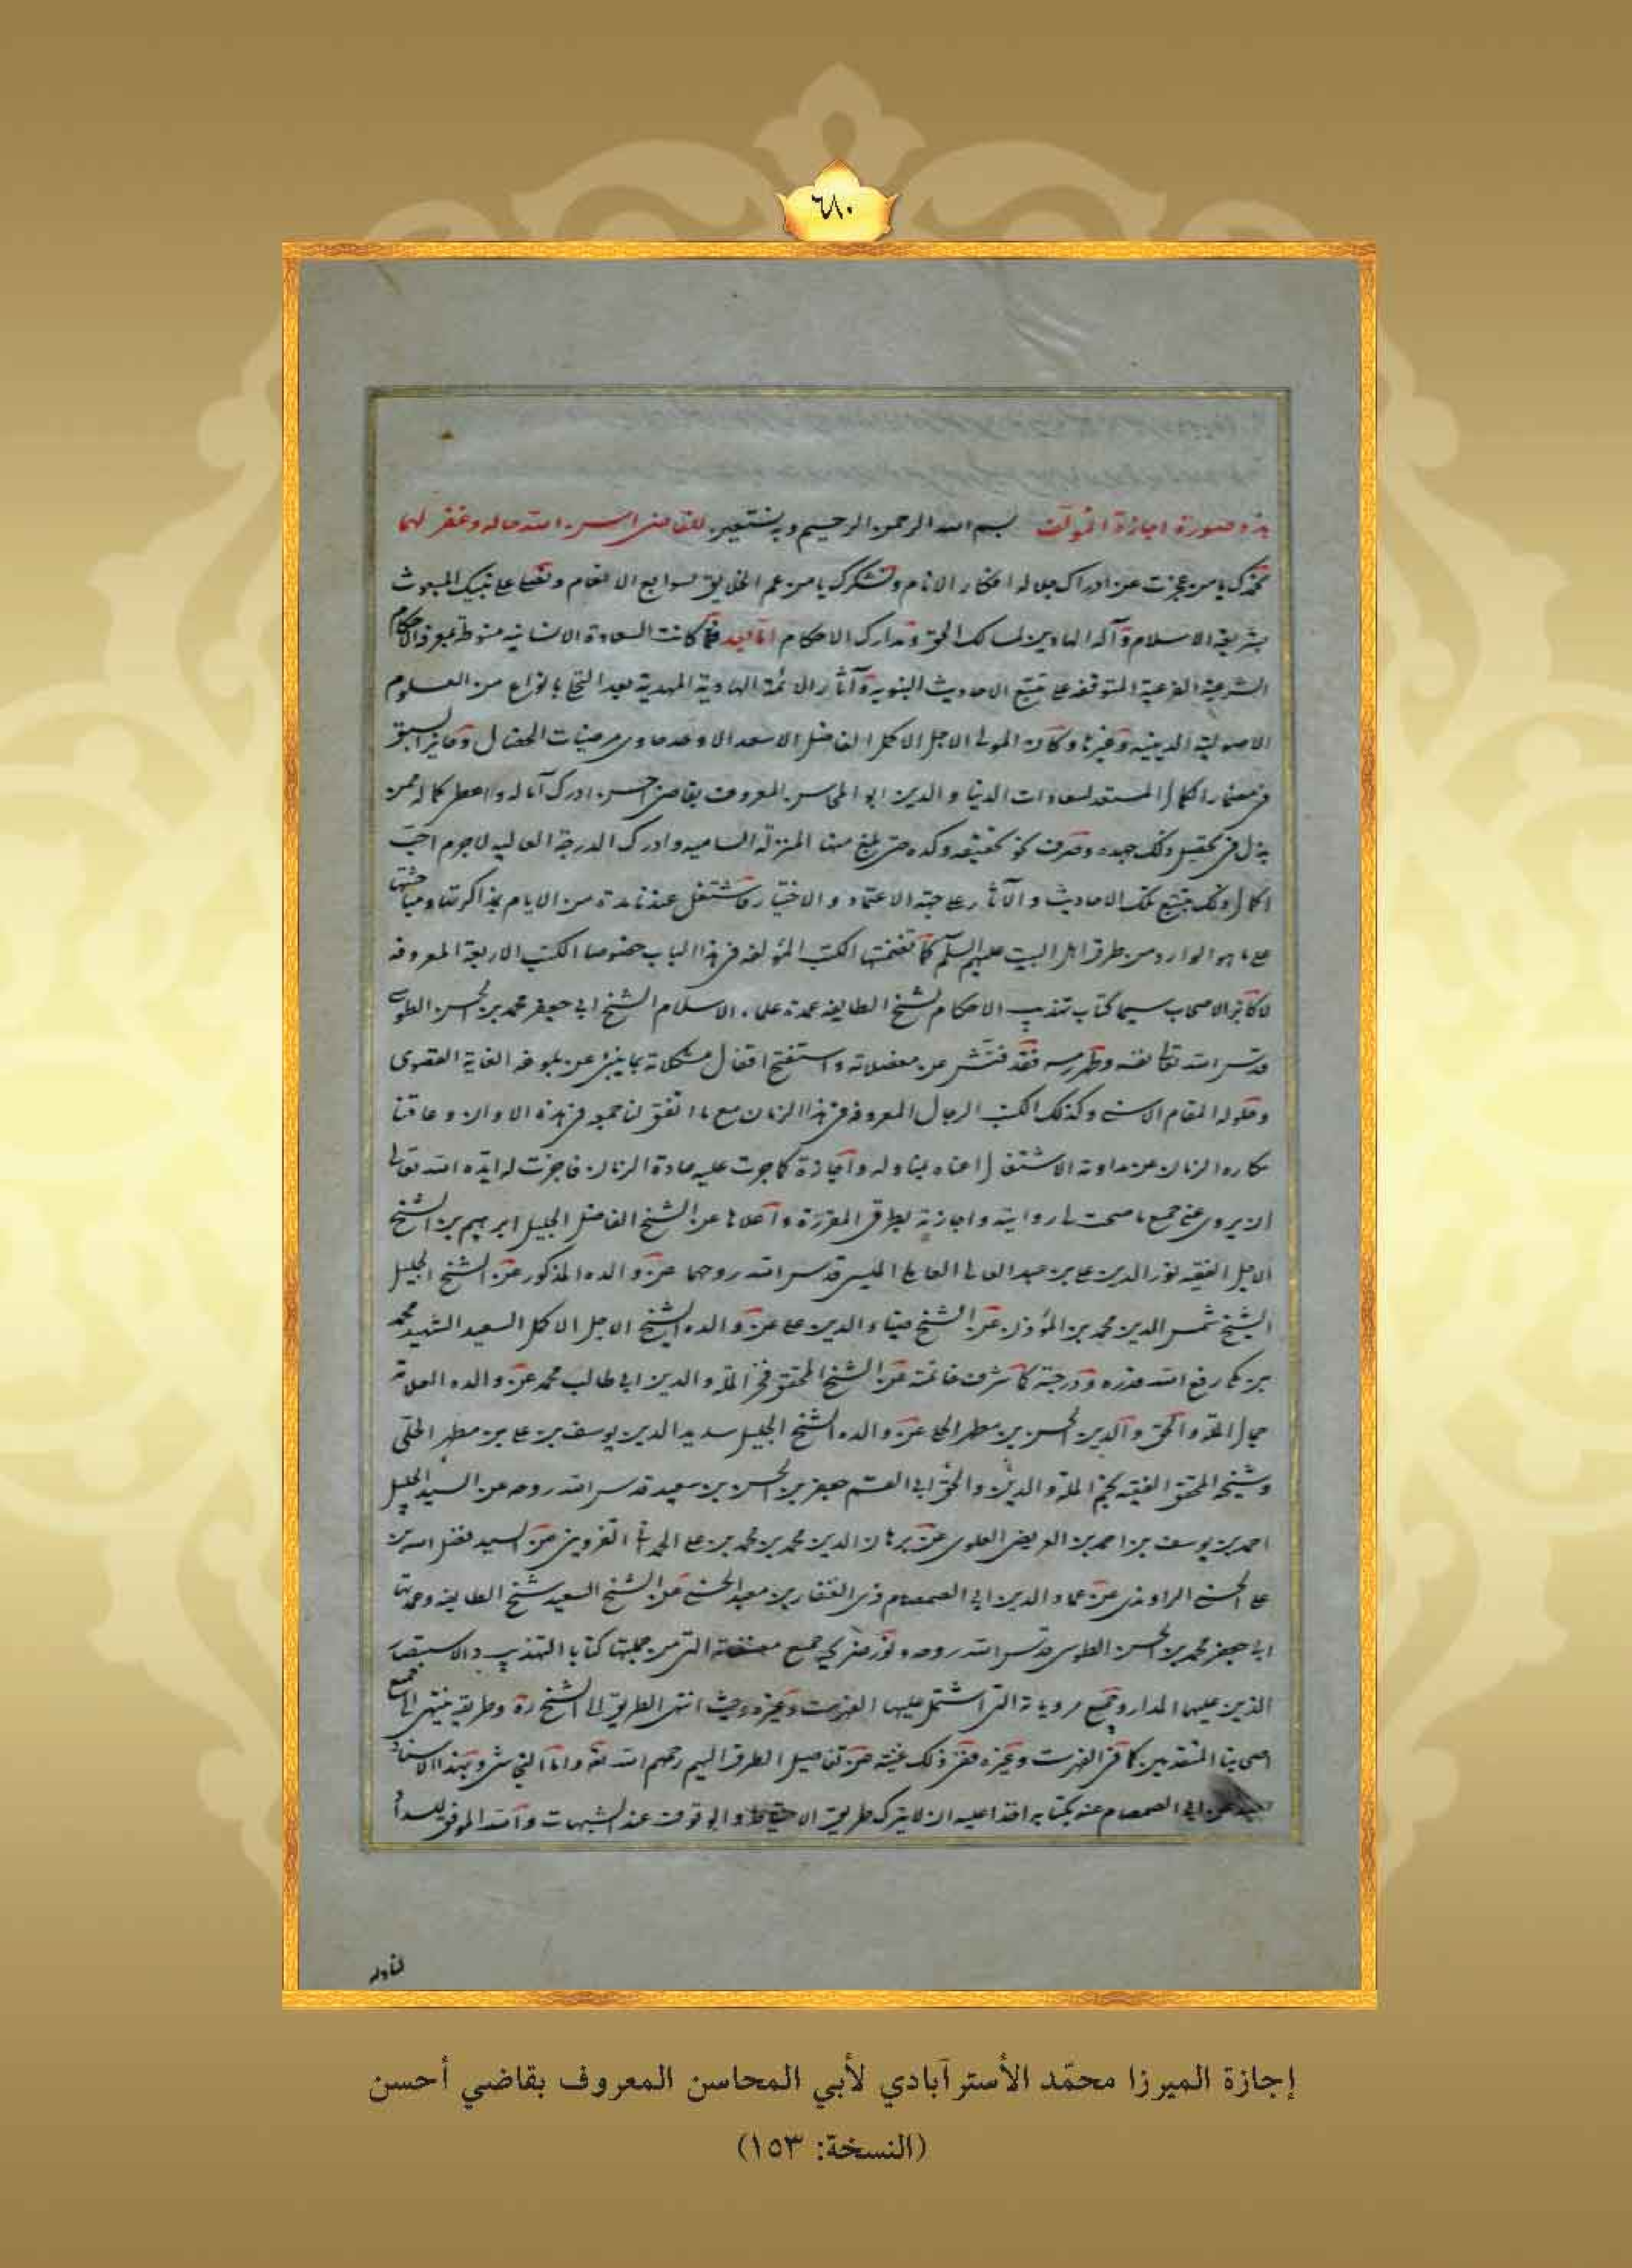 ٦٨٠
هذه صورة اجازة المؤلف بسم الله الرحمن الرحيم وبه نستعين للقاضي احسن الله حاله وغفر لهما
نحمدك يا من عجزت عن ادراك جلاله افكار الانام ونشكرك يا من عم الخلايق بسوابغ الانعام ونصلي على نبيك المبعوث
بشريعة الاسلام وآله الهادين لمسالك الحق ومدارك الاحكام اما بعد فلما كانت السعادة الانسانية منوطة بمعرفة الاحكام
الشرعية الفرعية المتوقفة على تتبع الاحاديث النبوية وآثار الائمة الهادية المهدية بعد التحلي بانواع من العلوم
الاصولية الدينية وغيرها وكان المولى الاجل الاكمل الفاضل الاسعد الاوحد حاوي مرضيات الخصال وحايز السبق
في مضمار الكمال المستعد لسعادات الدنيا والدين ابو المحاسن المعروف بقاضي احسن ادرك آماله واعطي كماله ممن
بذل في تحصيل ذلك جهده وصرف نحو تحقيقه وكده حتى بلغ منها المنزلة السامية وادرك الدرجة العالية لاجرم احب
اكمال ذلك بتتبع تلك الاحاديث والآثار على جهة الاعتماد والاختيار فاشتغل عندنا مدة من الايام بمذاكرتها ومباحثتها
على ما هو الوارد من طرق اهل البيت عليهم السلم كما تضمنتها الكتب المؤلفة في هذا الباب خصوصا الكتب الاربعة المعروفة
لاكابر الاصحاب سيما كتاب تهذيب الاحكام لشيخ الطايفة عمدة علماء الاسلام الشيخ ابي جعفر محمد بن الحسن الطوسي
قدس الله تعالى نفسه وطهر رمسه فقد فتش عن معضلاته واستفتح اقفال مشكلاته بما ينبئ عن بلوغه الغاية القصوى
وحلوله المقام الاسنى وكذلك كتب الرجال المعروفة في هذا الزمان مع ما اتفق لنا جمعه في هذه الاوان وعاقنا
مكاره الزمان عن مداومة الاشتغال اعناه بمناوله واجازة كما جرت عليه عادة الزمان فاجزت له ايده الله تعالى
ان يروي عني جميع ما صحت لي روايته واجازته بطرقي المقررة واعلاها عن الشيخ الفاضل الجليل ابرهيم بن الشيخ
الاجل الفقيه نور الدين علي بن عبد العالي العاملي الميسي قدس الله روحهما عن والده المذكور عن الشيخ الجليل
الشيخ شمس الدين محمد بن المؤذن عن الشيخ ضياء الدين علي عن والده الشيخ الاجل الاكمل السعيد الشهيد محمد
بن مكي رفع الله قدره ودرجته كما شرف خاتمته عن الشيخ المحقق فخر الملة والدين ابي طالب محمد عن والده العلامة
جمال الملة والحق والدين الحسن بن مطهر الحلي عن والده الشيخ الجليل سديد الدين يوسف بن علي بن مطهر الحلي
وشيخه المحقق الفقيه نجم الملة والدين والحق ابي القسم جعفر بن الحسن بن سعيد قدس الله روحه عن السيد الجليل
احمد بن يوسف بن احمد بن العريضي العلوي عن برهان الدين محمد بن محمد بن علي الحمداني القزويني عن السيد فضل الله بن
علي الحسني الراوندي عن عماد الدين ابي الصمصام ذي الفقار بن معبد الحسني عن الشيخ السعيد شيخ الطايفة وعمدتها
ابي جعفر محمد بن الحسن الطوسي قدس الله روحه ونور ضريحه جميع مصنفاته التي من جملتها كتابا التهذيب والاستبصار
الذين عليهما المدار وجميع مروياته التي اشتمل عليها الفهرست وغيره وحيث انتهى الطريق الى الشيخ ره وطريقه ينتهي الى جميع
اصحابنا المتقدمين كما في الفهرست وغيره ففي ذلك غنية عن تفاصيل الطرق اليهم رحمهم الله تعه واما النجاشي وبهذا الاسناد
عن ابي الصمصام عنه بكتابه اخذا عليه ان لا يترك طريق الاحتياط والوقوف عند الشبهات والله الموفق
لناوله
إجازة الميرزا محمّد الأسترآبادي لأبي المحاسن المعروف بقاضي أحسن
(النسخة: ١٥٣)